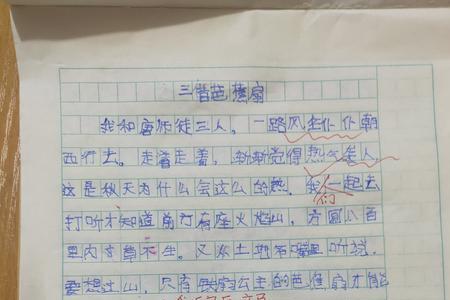 三借芭蕉扇
我和唐师徒三人。一路风尘仆仆朝
西行去。走着走着，渐渐觉得热气煞人
这是秋天为什么会这么的热。我们一起去
打听才知道前方有座火焰山，方圆八百
里内寸草不生。又从土地嘴里听说，
要想过山，只有铁扇公主的芭蕉扇才能